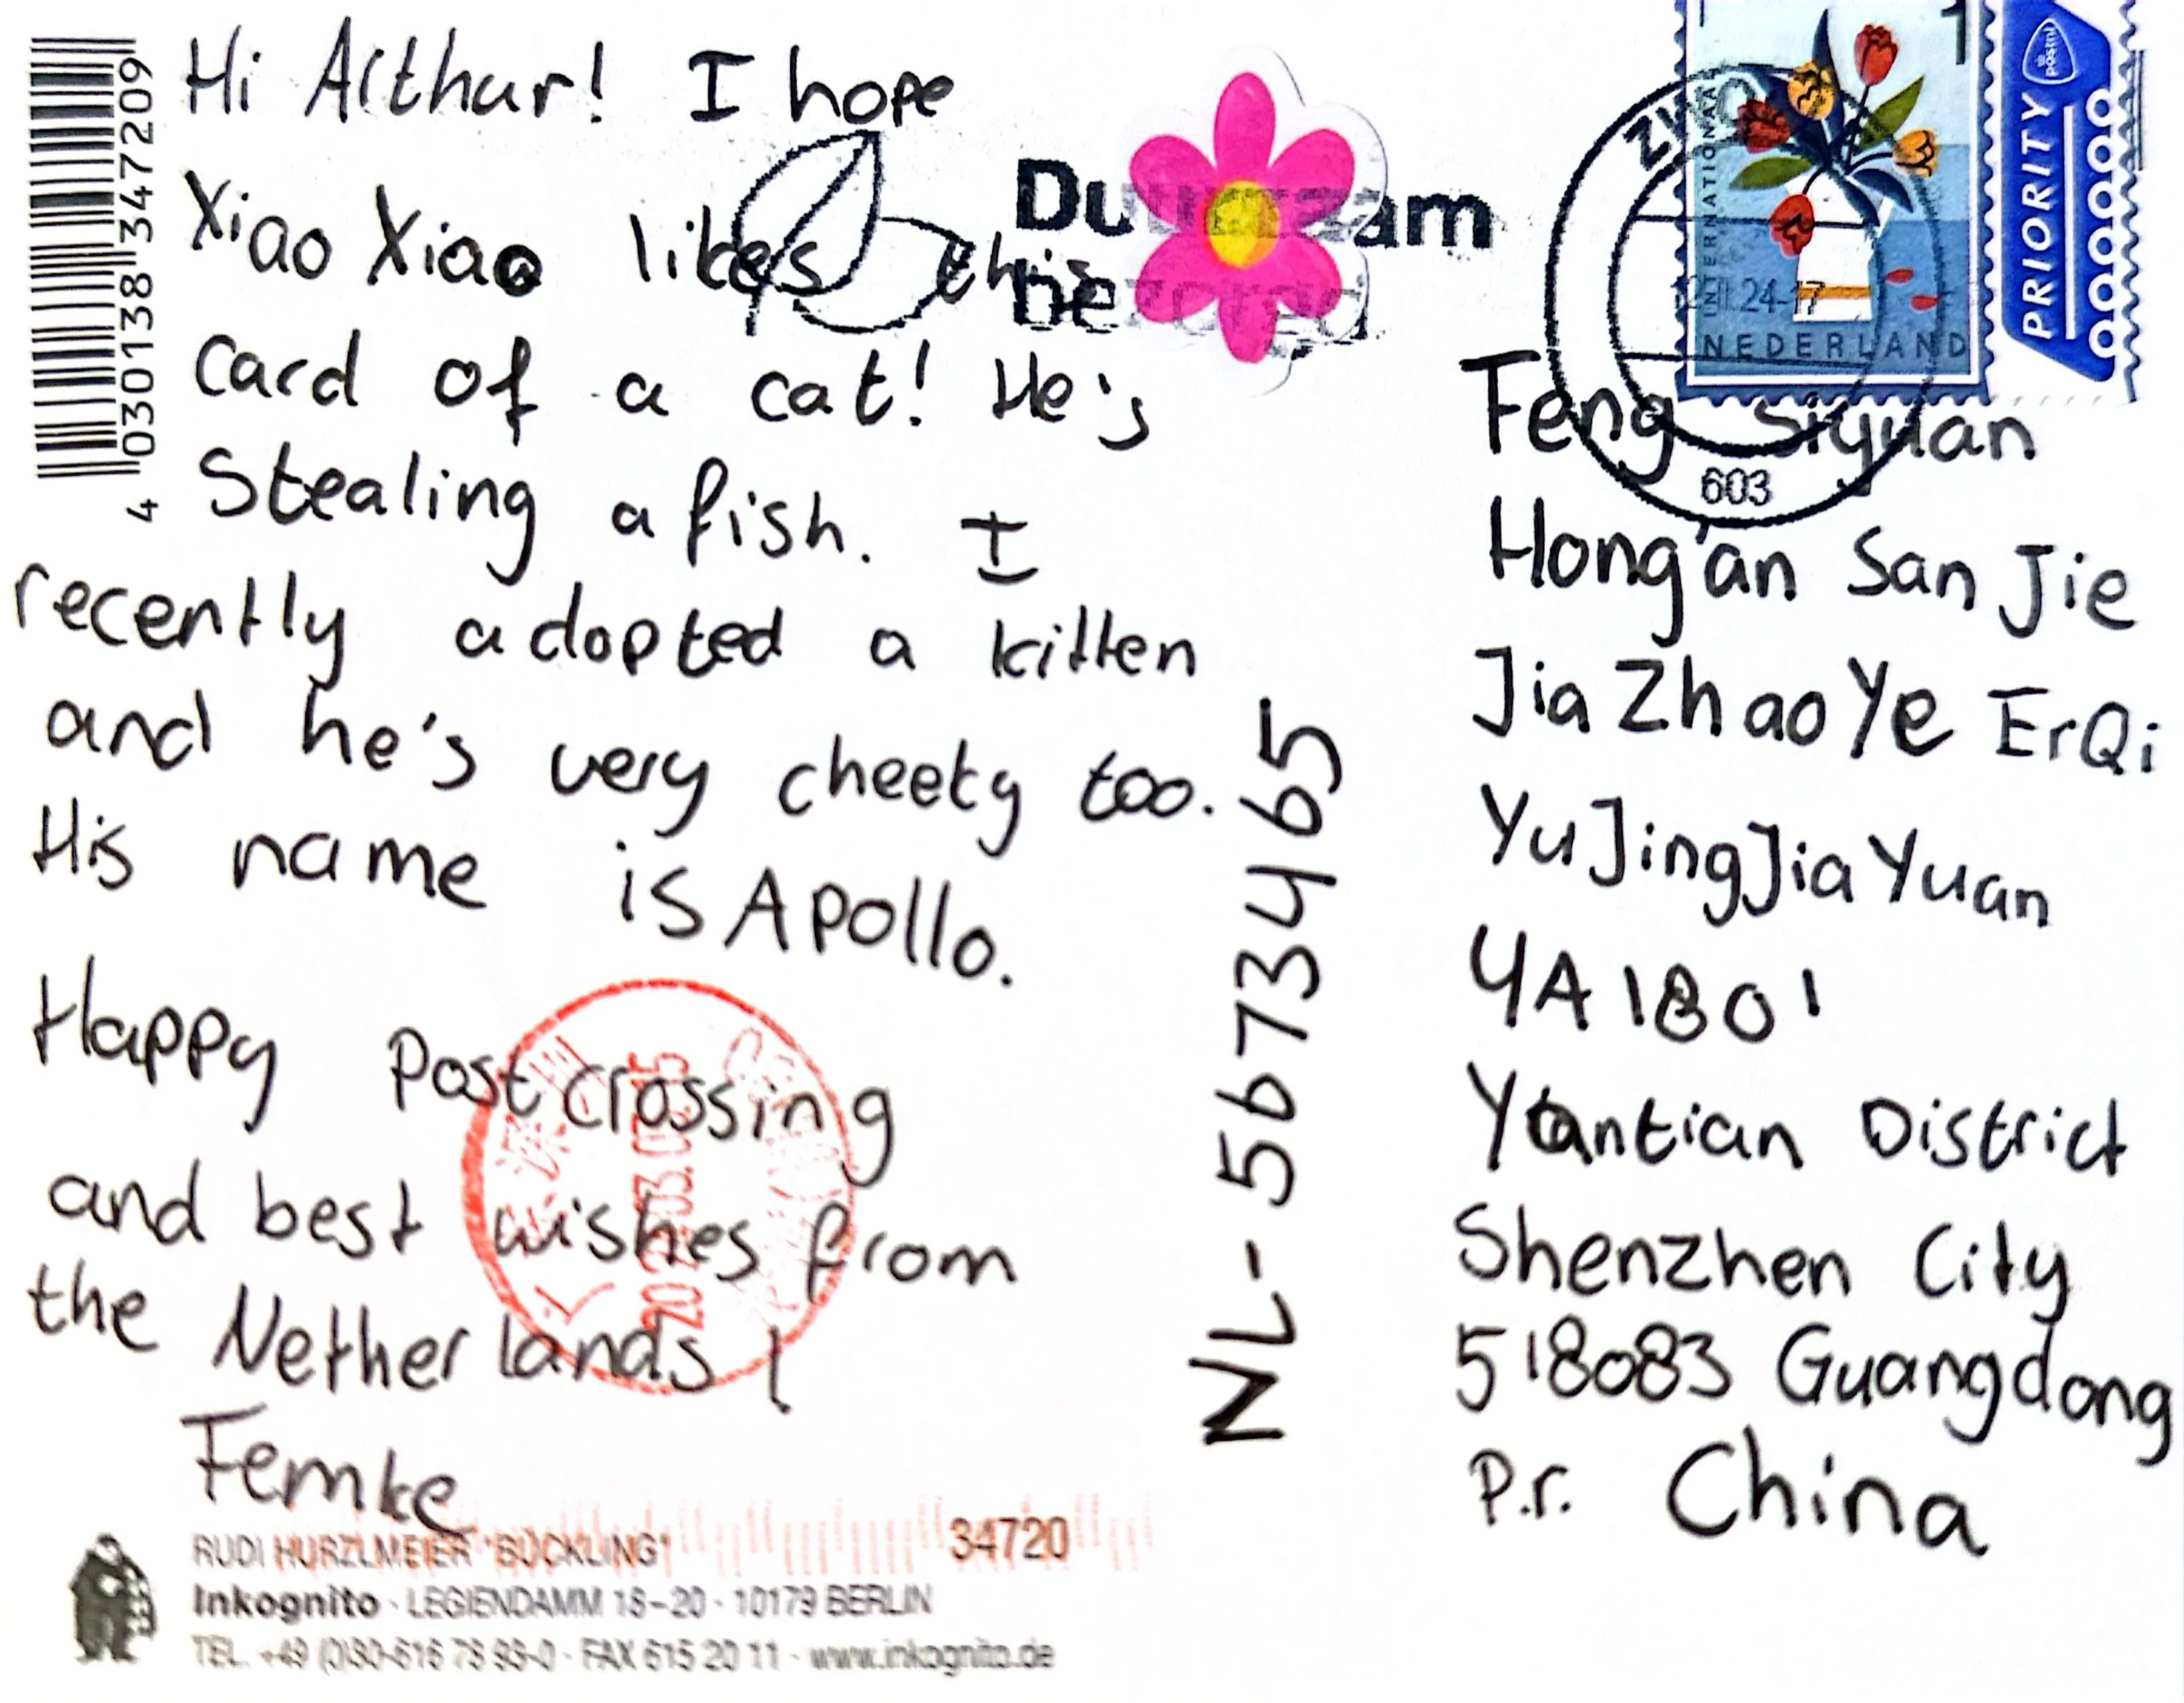 Hi Arthur! I hope
Xiao Xiao likes this
card of a cat! He's
stealing a fish. I
recently adopted a kitten
and he's very cheeky too.
His name is Apollo.
Happy Postcrossing
and best wishes from
the Netherlands!
Femke
4 030138 347209
Duurzaam
bezorgd
NL-5673465
INTERNATIONAL
1
NEDERLAND
PRIORITY
postnl
603
Feng Siyuan
Hong'an San Jie
JiaZhaoYe ErQi
YuJingJiaYuan
4A 1801
Yantian District
Shenzhen City
518083 Guangdong
P.r. China
RUDI HURZLMEIER "BÜCKLING"
34720
Inkognito · LEGIENDAMM 18–20 · 10179 BERLIN
TEL. +49 (0)30-616 78 99-0 · FAX 615 20 11 · www.inkognito.de